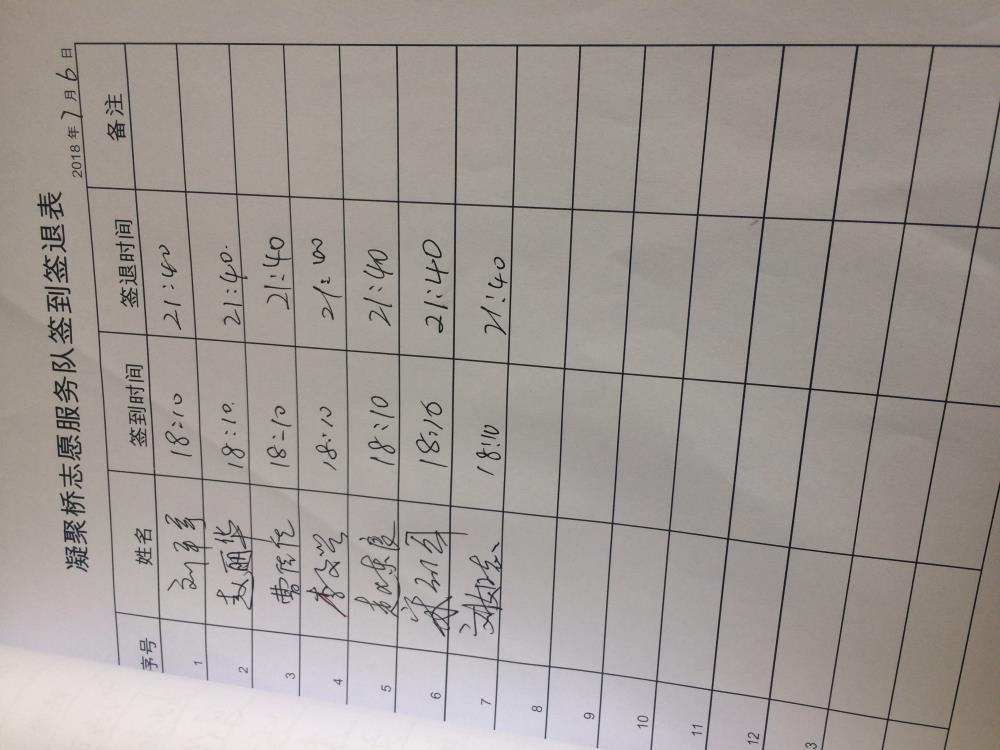 凝聚桥志愿服务队签到签退表
2018 年 7 月 6 日
序号 姓名 签到时间 签退时间 备注
1 18:10 21:40
2 赵丽华 18:10. 21:40.
3 曹佳佳 18:10 21:40
4 李文兰 18:10 21:40
5 18:10 21:40
6 18:10 21:40
7 18:10 21:40
8
9
10
11
12
3